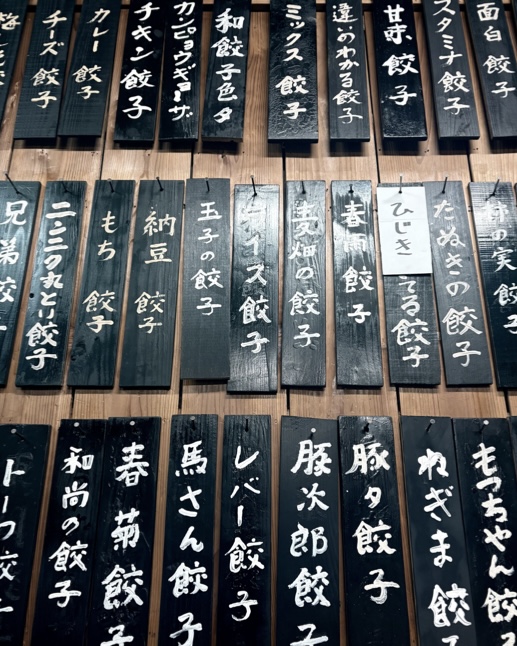 面白餃子
スタミナ餃子
甘味餃子
違いのわかる餃子
ミックス餃子
和餃子色々
カンピョウギョーザ
チキン餃子
カレー餃子
チーズ餃子
の実餃
たぬきの餃子
ひじき
てる餃子
春雨餃子
麦畑の餃子
イズ餃子
玉子の餃子
納豆餃子
もち餃子
とり餃子
兄弟餃
もっちゃん餃
ねぎま餃子
豚々餃子
豚次郎餃子
レバー餃子
馬さん餃子
春菊餃子
和尚の餃子
トーフ餃